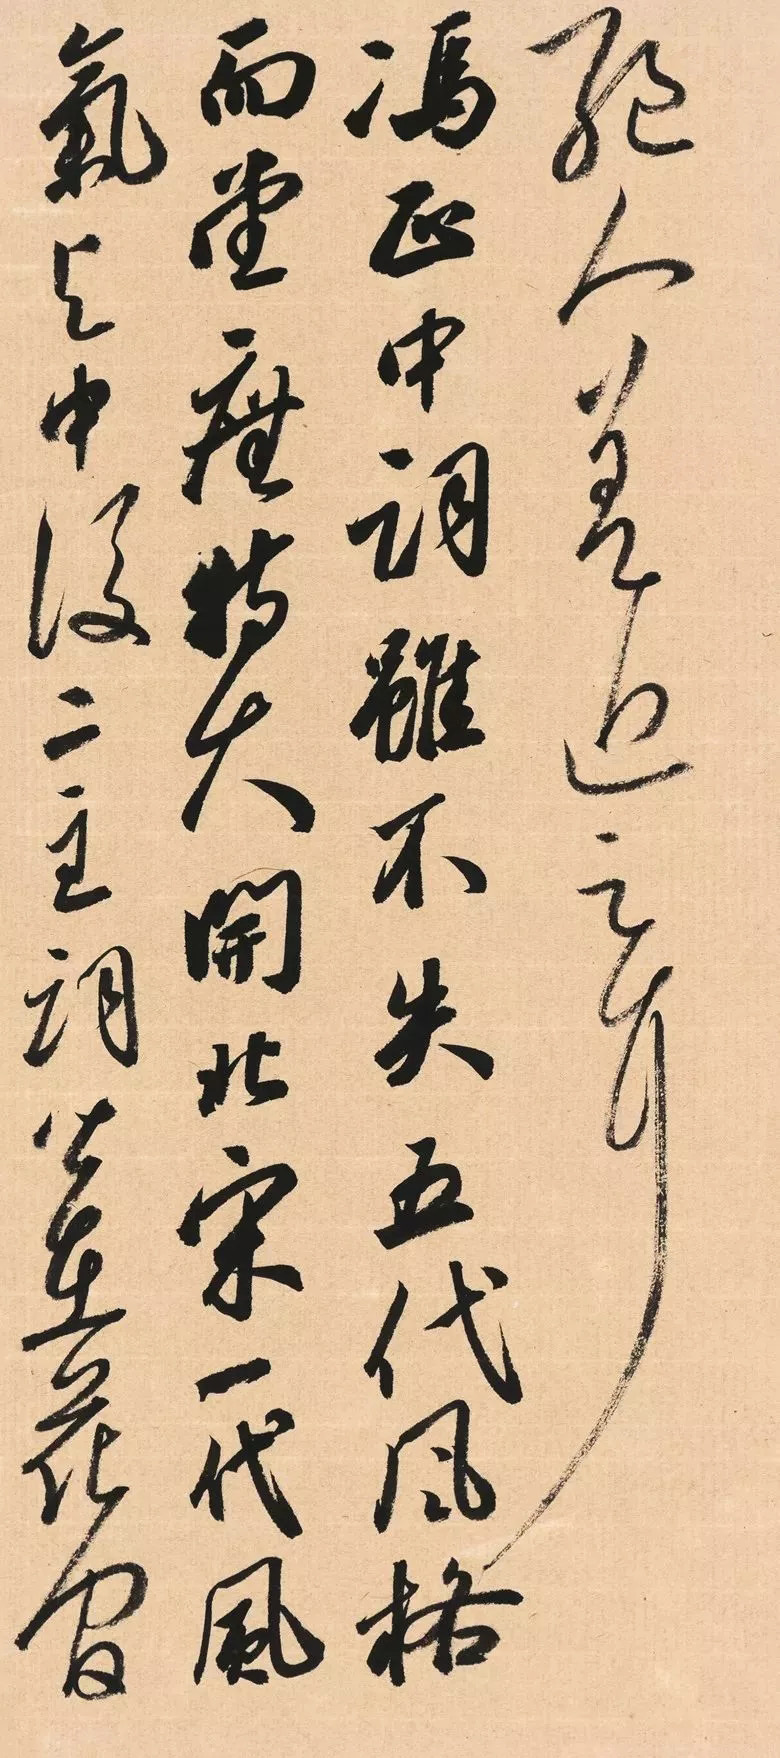 艷人差近之耳
馮正中詞雖不失五代風格
而堂廡特大開北宋一代風
氣與中後二主詞皆在花間